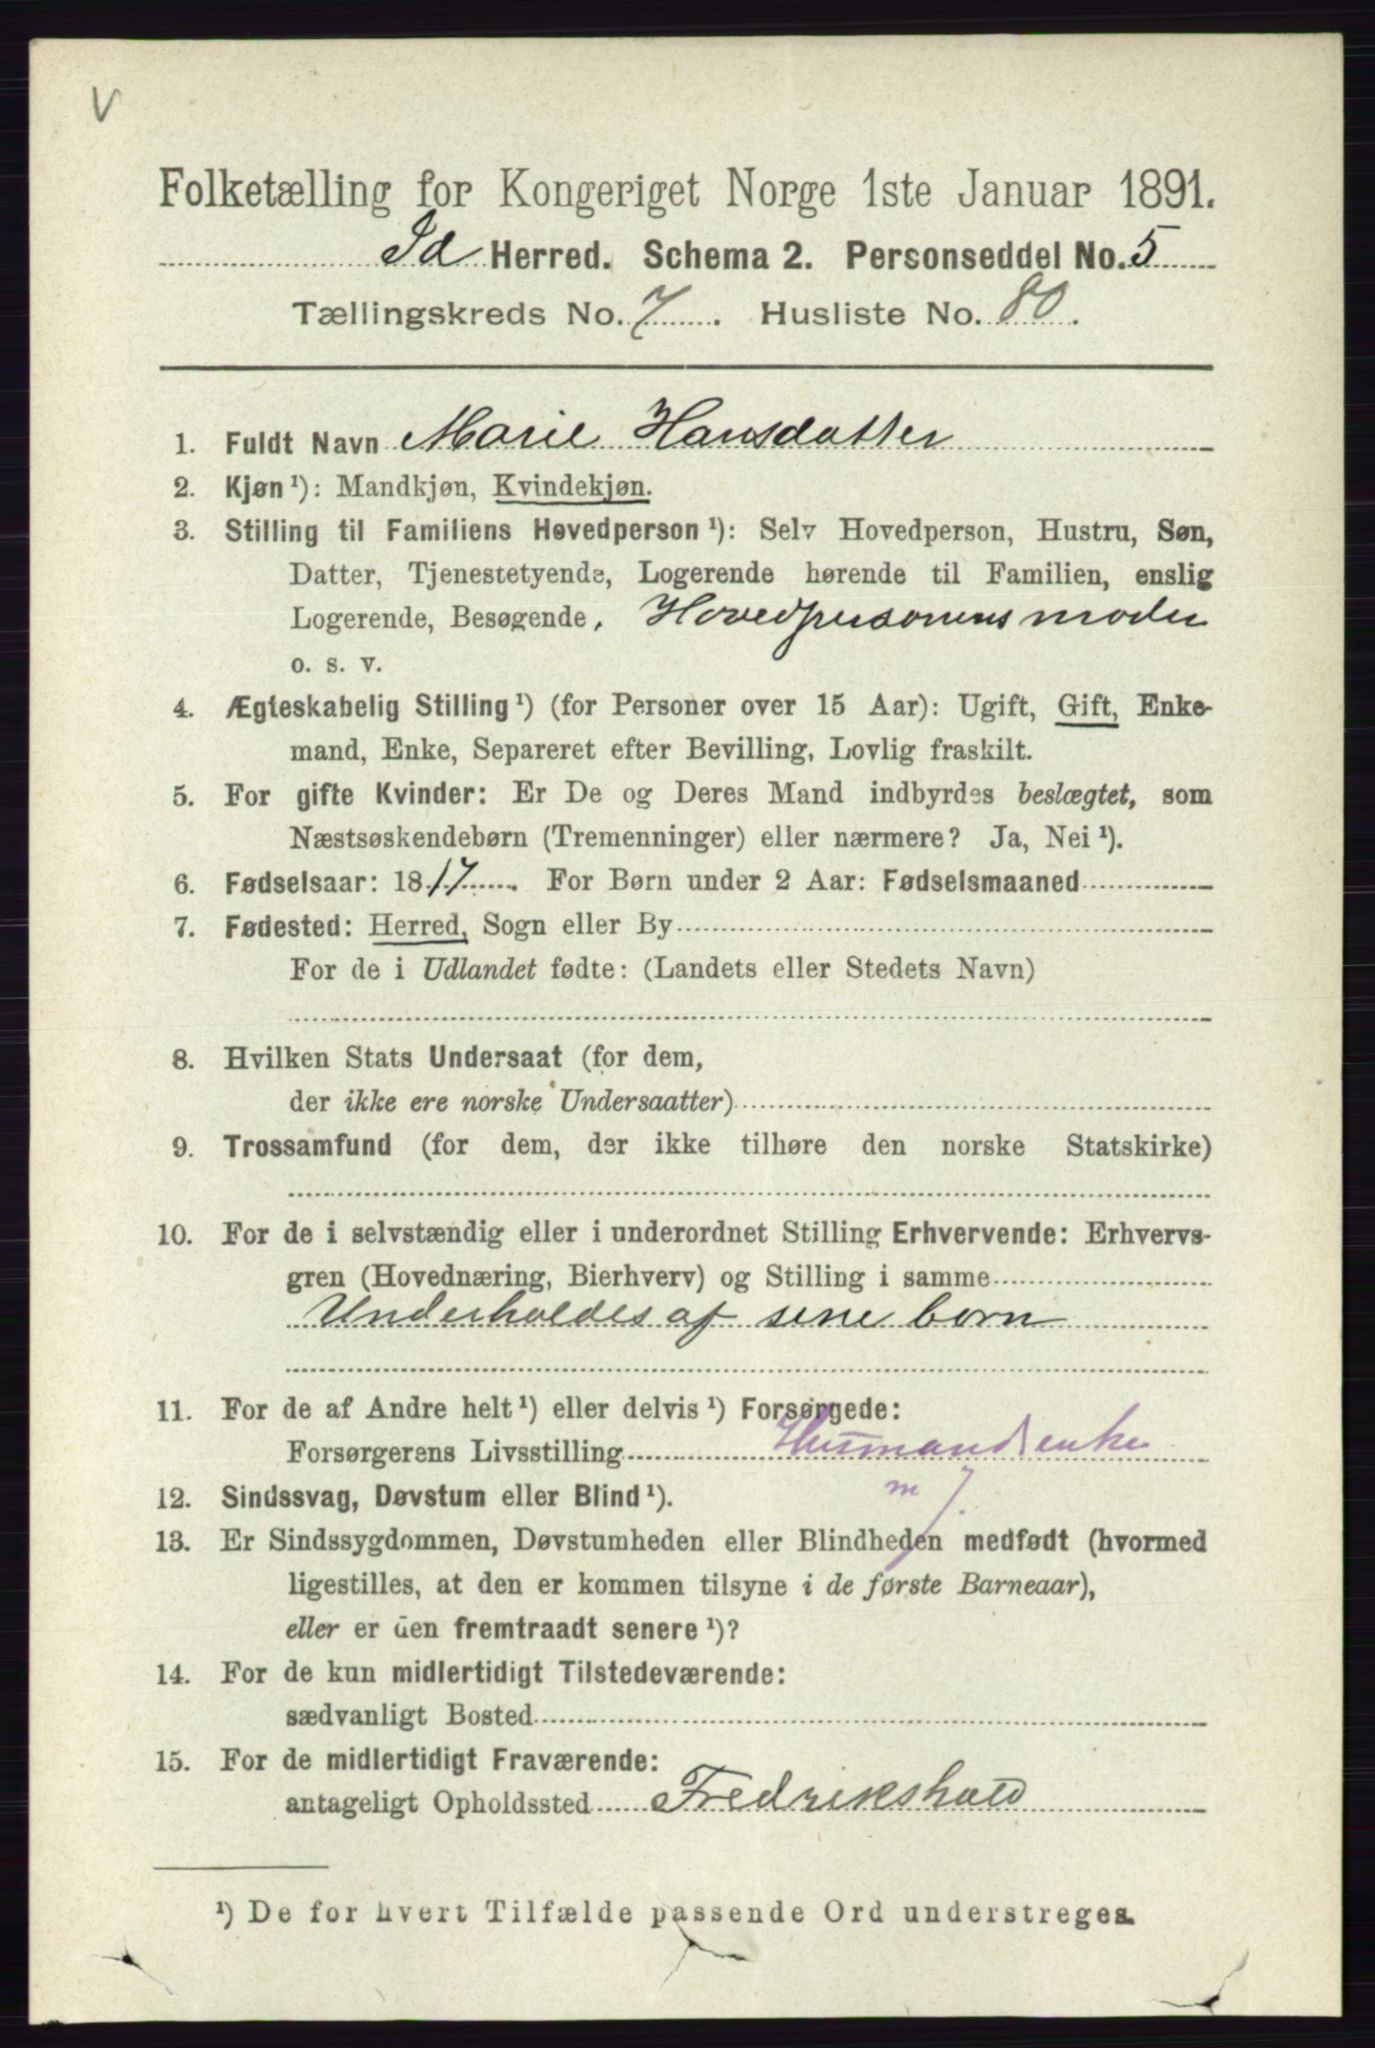 V
Folketælling for Kongeriget Norge 1ste Januar 1891.
Id Herred. Schema 2. Personseddel No. 5
Tællingskreds No. 7. Husliste No. 80.
1. Fuldt Navn Marie Hansdatter
2. Kjøn ¹): Mandkjøn, Kvindekjøn.
3. Stilling til Familiens Hovedperson ¹): Selv Hovedperson, Hustru, Søn,
Datter, Tjenestetyende, Logerende hørende til Familien, enslig
Logerende, Besøgende, Hovedpersonens moder
o. s. v.
4. Ægteskabelig Stilling ¹) (for Personer over 15 Aar): Ugift, Gift, Enke-
mand, Enke, Separeret efter Bevilling, Lovlig fraskilt.
5. For gifte Kvinder: Er De og Deres Mand indbyrdes beslægtet, som
Næstsøskendebørn (Tremenninger) eller nærmere? Ja, Nei ¹).
6. Fødselsaar: 1817. For Børn under 2 Aar: Fødselsmaaned
7. Fødested: Herred, Sogn eller By
For de i Udlandet fødte: (Landets eller Stedets Navn)
8. Hvilken Stats Undersaat (for dem,
der ikke ere norske Undersaatter)
9. Trossamfund (for dem, der ikke tilhøre den norske Statskirke)
10. For de i selvstændig eller i underordnet Stilling Erhvervende: Erhvervs-
gren (Hovednæring, Bierhverv) og Stilling i samme
Underholdes af sine børn
11. For de af Andre helt ¹) eller delvis ¹) Forsørgede:
Forsørgerens Livsstilling Husmandsenke
m j.
12. Sindssvag, Døvstum eller Blind ¹).
13. Er Sindssygdommen, Døvstumheden eller Blindheden medfødt (hvormed
ligestilles, at den er kommen tilsyne i de første Barneaar),
eller er den fremtraadt senere ¹)?
14. For de kun midlertidigt Tilstedeværende:
sædvanligt Bosted
15. For de midlertidigt Fraværende:
antageligt Opholdssted Fredrikshald
¹) De for hvert Tilfælde passende Ord understreges.